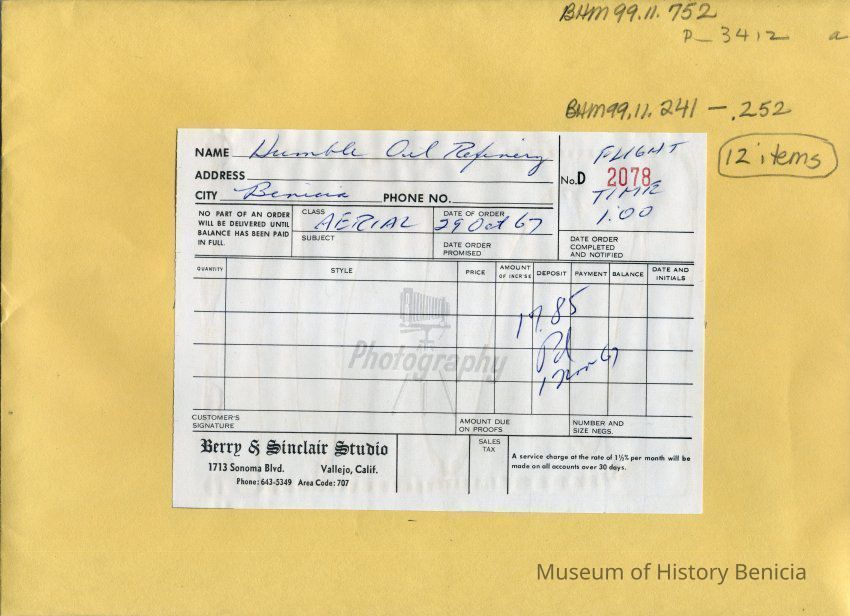 BHM 99.11.752
P-3412 a
BHM99.11.241 - .252
12 items
NAME Humble Oil Refinery
ADDRESS
CITY Benicia PHONE NO.
No. D 2078
FLIGHT
TIME
1:00
NO PART OF AN ORDER
WILL BE DELIVERED UNTIL
BALANCE HAS BEEN PAID
IN FULL.
CLASS
AERIAL
SUBJECT
DATE OF ORDER
29 Oct 67
DATE ORDER
PROMISED
DATE ORDER
COMPLETED
AND NOTIFIED
QUANTITY STYLE PRICE AMOUNT OF INCR'SE DEPOSIT PAYMENT BALANCE DATE AND INITIALS
17.85
Pd
1 Nov 67
Photography
CUSTOMER'S
SIGNATURE
AMOUNT DUE
ON PROOFS
NUMBER AND
SIZE NEGS.
Berry & Sinclair Studio
1713 Sonoma Blvd. Vallejo, Calif.
Phone: 643-5349 Area Code: 707
SALES
TAX
A service charge at the rate of 1½% per month will be
made on all accounts over 30 days.
Museum of History Benicia